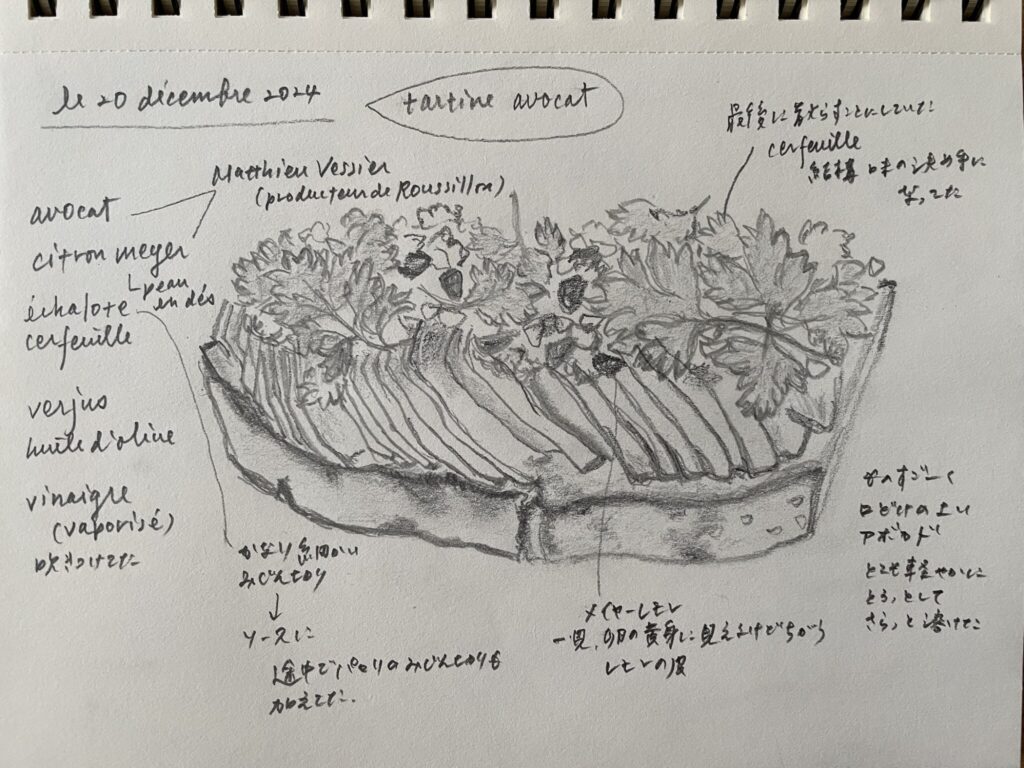 le 20 décembre 2024
tartine avocat
Matthieu Vessier
(producteur de Roussillon)
avocat
citron meyer
peau
en dés
échalote
cerfeuille
verjus
huile d'olive
vinaigre
(vaporisé)
吹きつけてた
最後に散らすことにしていた
cerfeuille
結構 味の決め手に
なってた
かなり細かい
みじん切り
↓
ソースに
途中でパセリのみじん切りも
加えてた.
メイヤーレモン
一見、卵の黄身に見えるけどちがう
レモンの皮
ものすごーく
口どけの良い
アボカド
とても軽やかに
とろっとして
さらっと溶けてた